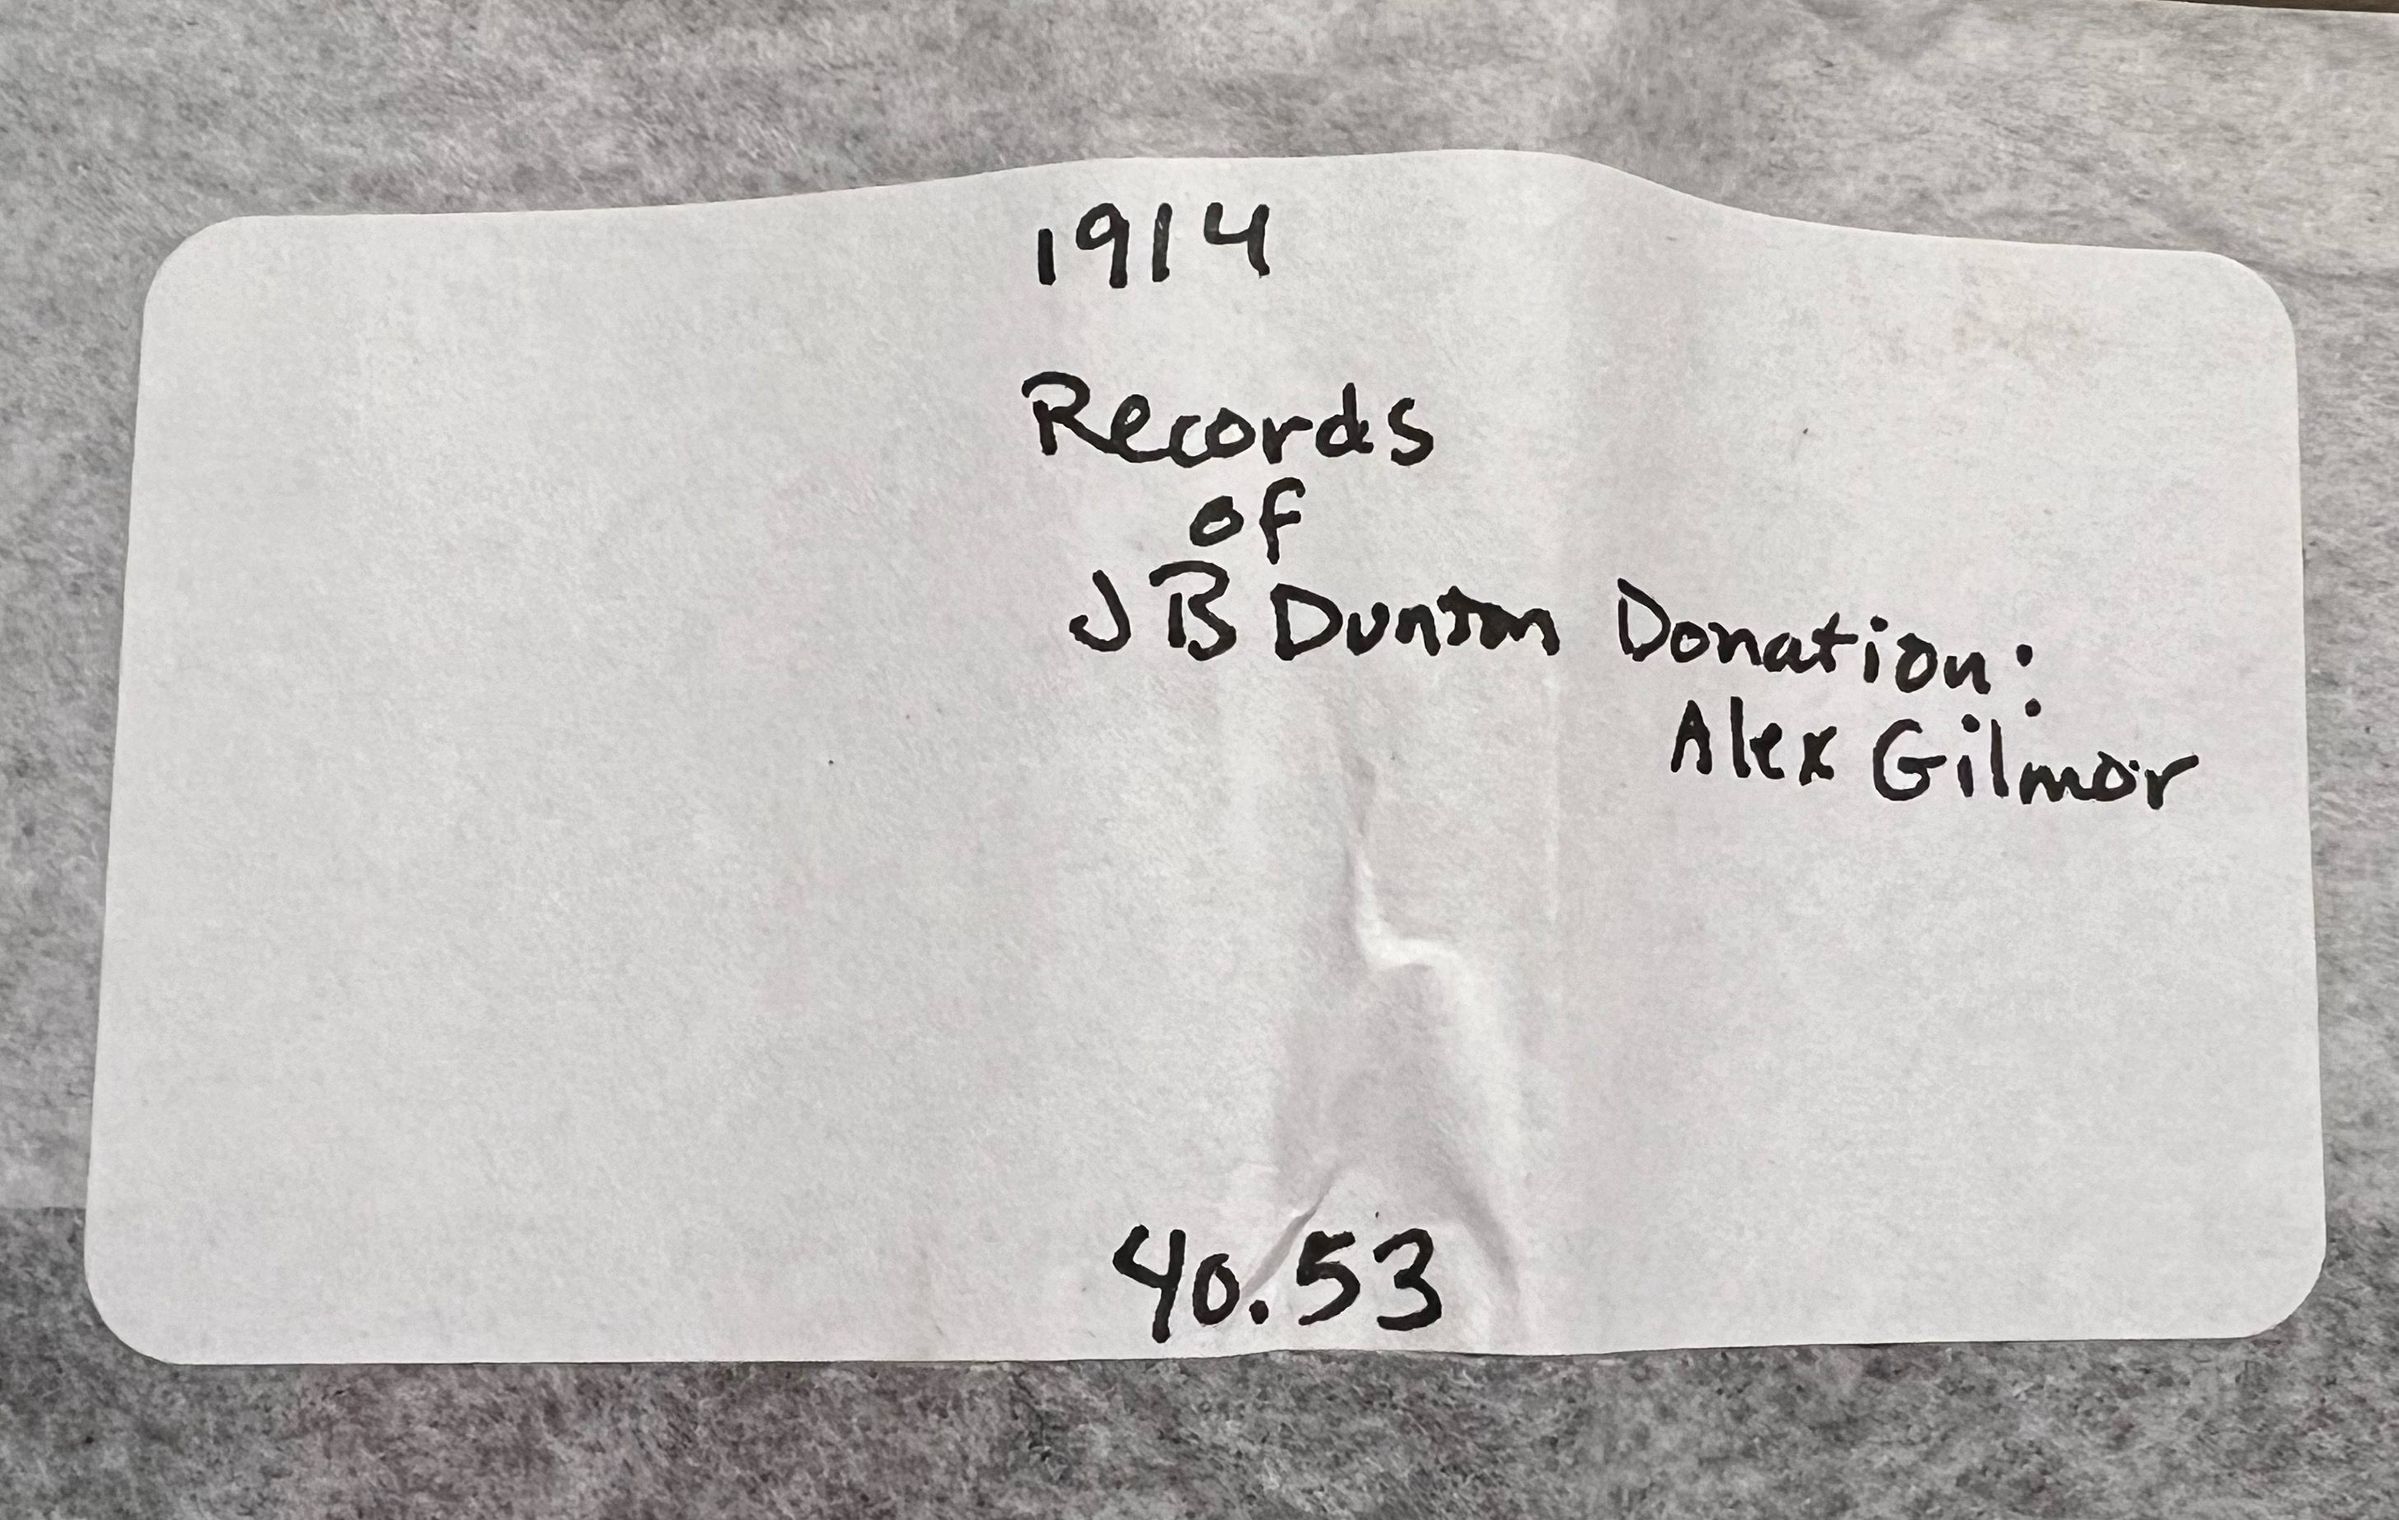 1914
Records
of
J B Dunton Donation:
Alex Gilmor
40.53